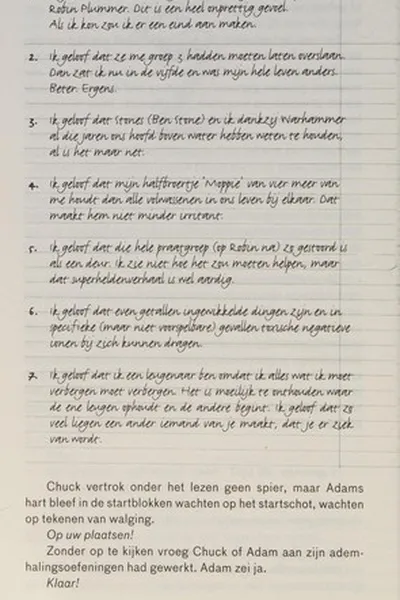 Robin Plummer. Dit is een heel onprettig gevoel.
Als ik kon zou ik er een eind aan maken.
2. Ik geloof dat ze me groep 3 hadden moeten laten overslaan.
Dan zat ik nu in de vijfde en was mijn hele leven anders.
Beter. Ergens.
3. Ik geloof dat Stones (Ben Stone) en ik dankzij Warhammer
al die jaren ons hoofd boven water hebben weten te houden,
al is het maar net.
4. Ik geloof dat mijn halfbroertje 'Moppie' van vier meer van
me houdt dan alle volwassenen in ons leven bij elkaar. Dat
maakt hem niet minder irritant.
5. Ik geloof dat die hele praatgroep (op Robin na) zo gestoord is
als een deur. Ik zie niet hoe het zou moeten helpen, maar
dat superheldenverhaal is wel aardig.
6. Ik geloof dat even getallen ingewikkelde dingen zijn en in
specifieke (maar niet voorspelbare) gevallen toxische negatieve
ionen bij zich kunnen dragen.
7. Ik geloof dat ik een leugenaar ben omdat ik alles wat ik moet
verbergen moet verbergen. Het is moeilijk te onthouden waar
de ene leugen ophoudt en de andere begint. Ik geloof dat zo
veel liegen een ander iemand van je maakt, dat je er ziek
van wordt.
Chuck vertrok onder het lezen geen spier, maar Adams
hart bleef in de startblokken wachten op het startschot, wachten
op tekenen van walging.
Op uw plaatsen!
Zonder op te kijken vroeg Chuck of Adam aan zijn adem-
halingsoefeningen had gewerkt. Adam zei ja.
Klaar!